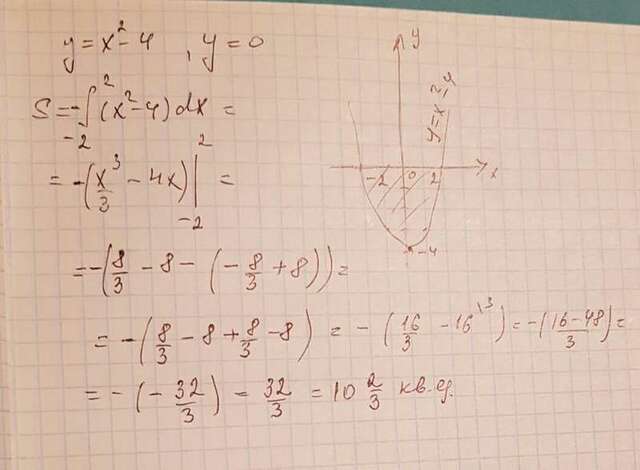 y = x² - 4 , y = 0
S = -∫₋₂² (x² - 4) dx =
= -(x³/3 - 4x) |₋₂² =
= -(8/3 - 8 - (-8/3 + 8)) =
= -(8/3 - 8 + 8/3 - 8) = -(16/3 - 16\³) = -(16-48/3) =
= -(-32/3) = 32/3 = 10 2/3 кв.ед.
y
y = x² - 4
-2 0 2 x
-4